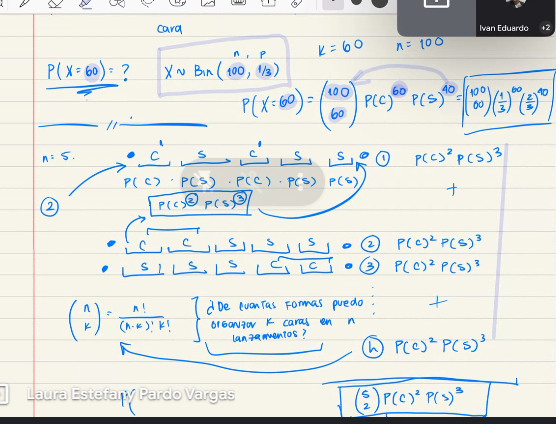 cara
Ivan Eduardo
+2
P(X=60) = ?
X ~ Bin(100, 1/3)
n, p
K = 60 n = 100
P(X=60) = (100 60) P(C)^60 P(S)^40 = (100 60)(1/3)^60(2/3)^40
n = 5.
C S C S S ① P(C)² P(S)³
P(C) · P(S) · P(C) · P(S) P(S)
+
② P(C)² P(S)³
C C S S S ② P(C)² P(S)³
S S S C C ③ P(C)² P(S)³
(n k) = n! / (n-k)! k!
¿De cuantas formas puedo
organizar K caras en n
lanzamientos?
+
ⓗ P(C)² P(S)³
Laura Estefany Pardo Vargas
P(
(5 2) P(C)² P(S)³